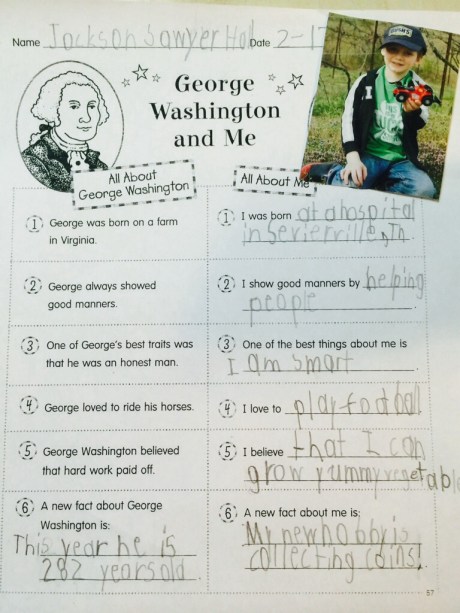 Name Jackson Sawyer Date 2-17
George
Washington
and Me
All About
George Washington
All About Me
1 George was born on a farm
in Virginia.
1 I was born at a hospital
in Sevierville, Tn.
2 George always showed
good manners.
2 I show good manners by helping
people.
3 One of George's best traits was
that he was an honest man.
3 One of the best things about me is
I am smart.
4 George loved to ride his horses.
4 I love to play football
5 George Washington believed
that hard work paid off.
5 I believe that I can
grow yummy vegetable
6 A new fact about George
Washington is:
This year he is
282 years old.
6 A new fact about me is:
My new hobby is
collecting coins!
57